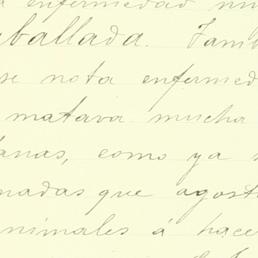 enfermedad mu
aballada. Tamb
se nota enfermed
matava mucha
anas, como ya s
nadas que agost
animales á hace